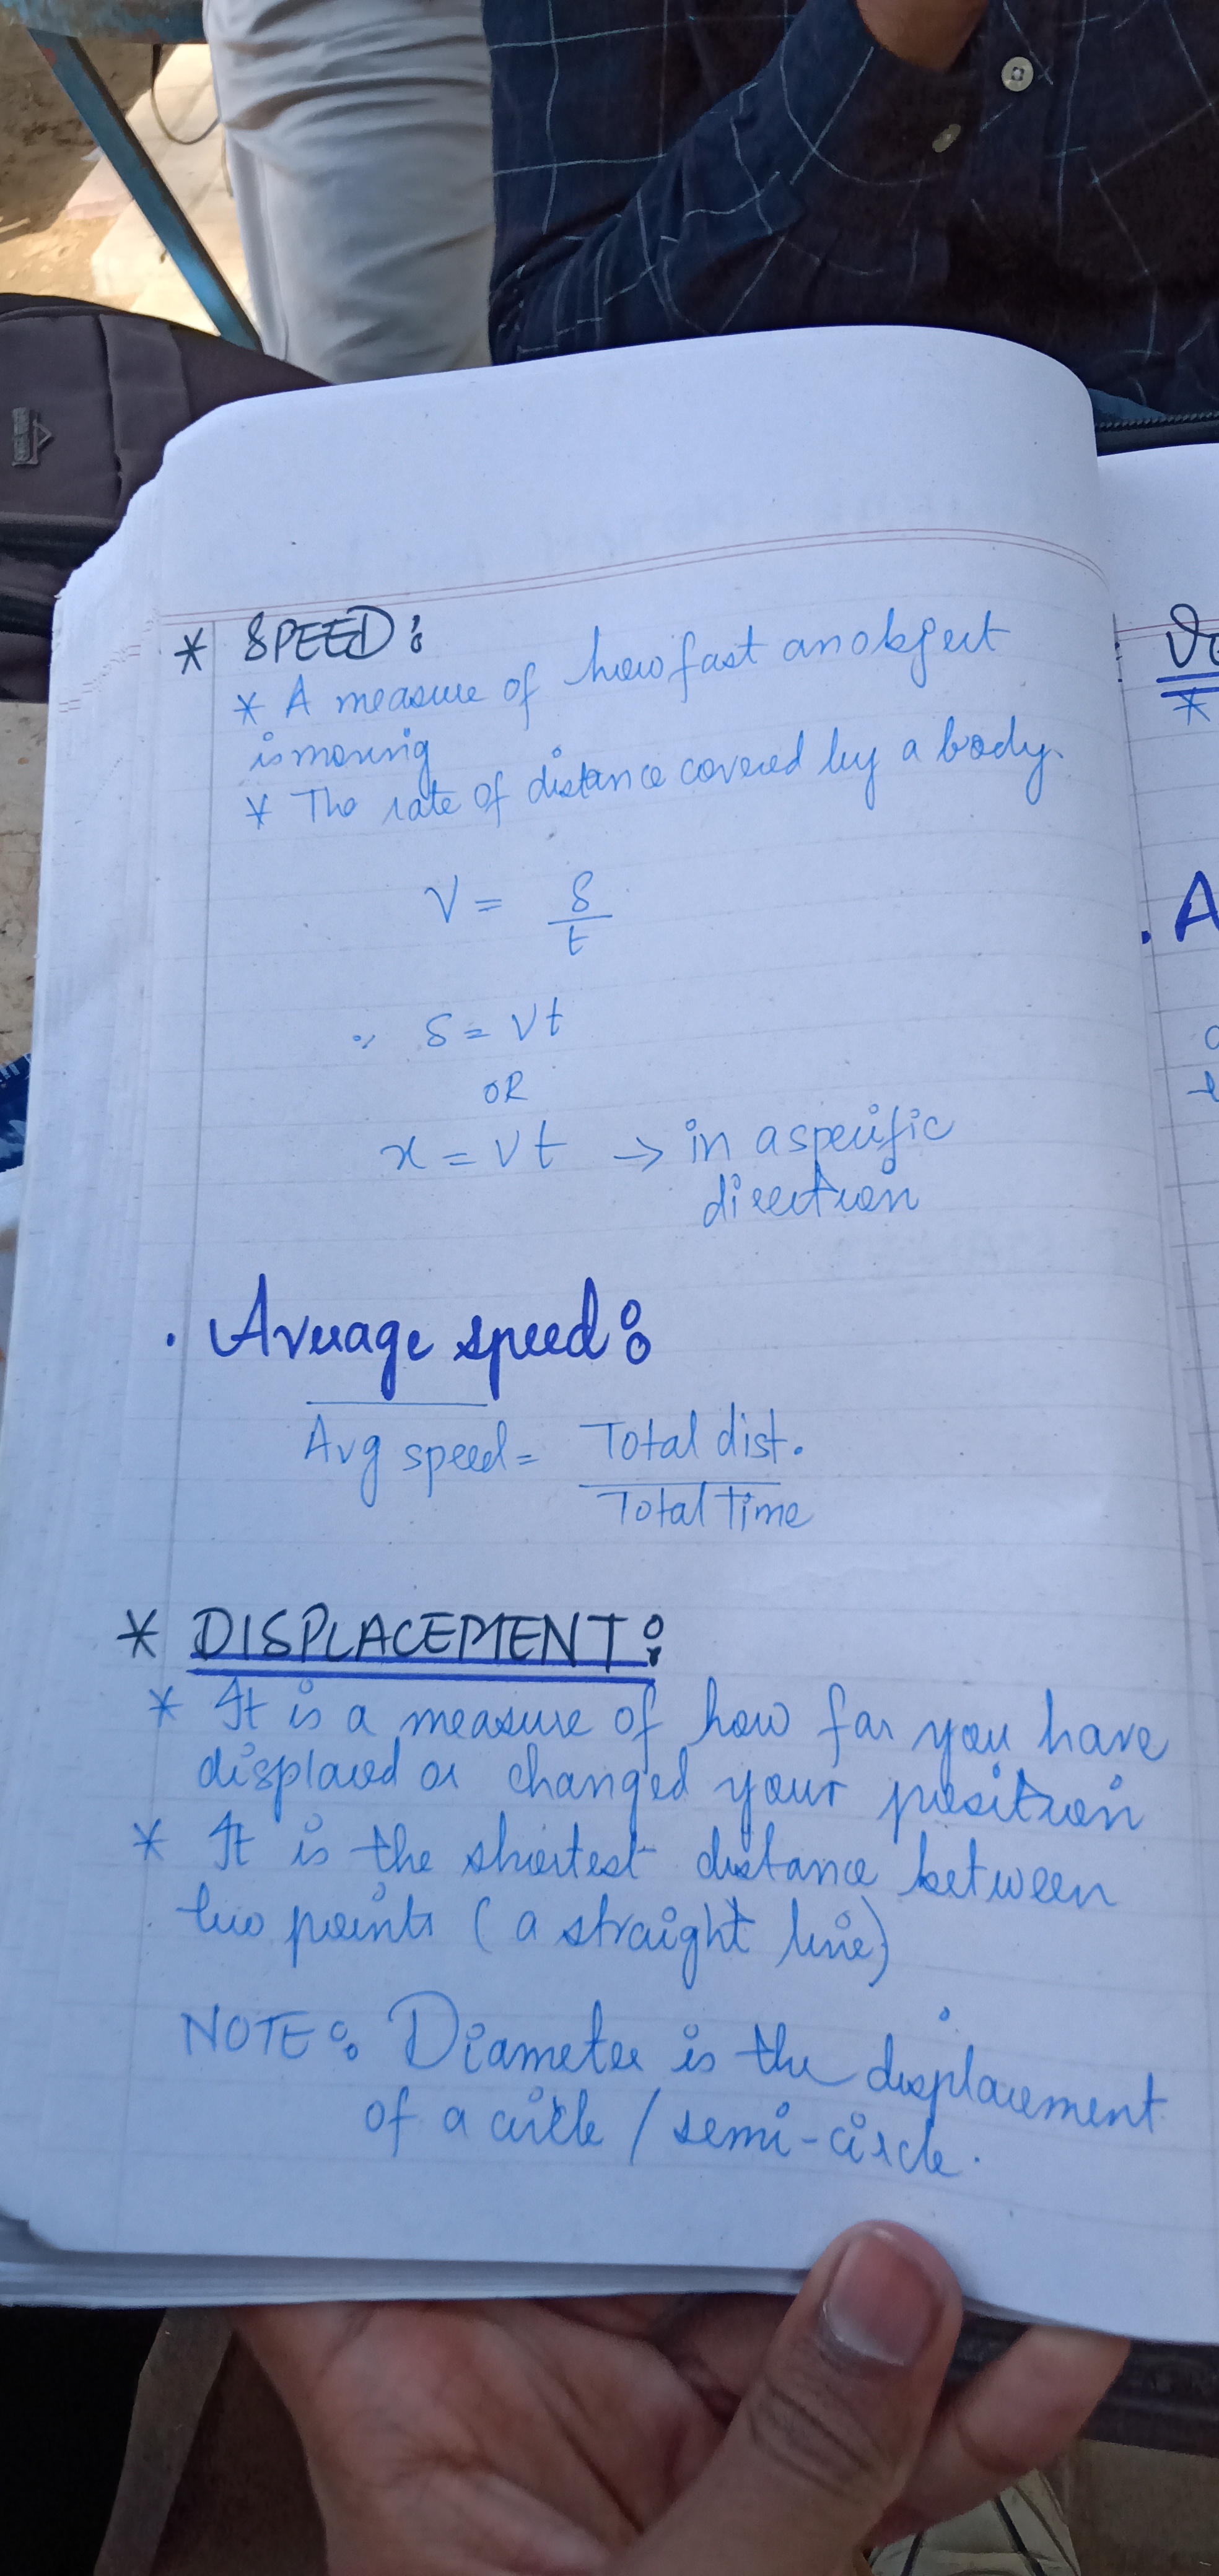 * SPEED:
* A measure of how fast an object
is moving
* The rate of distance covered by a body.
V = S
t
∴ S = Vt
OR
x = vt → in a specific
direction
. Average speed:
Avg speed = Total dist.
Total Time
* DISPLACEMENT:
* It is a measure of how far you have
displaced or changed your position
* It is the shortest distance between
two points (a straight line)
NOTE: Diameter is the displacement
of a circle / semi-circle.
*
. A